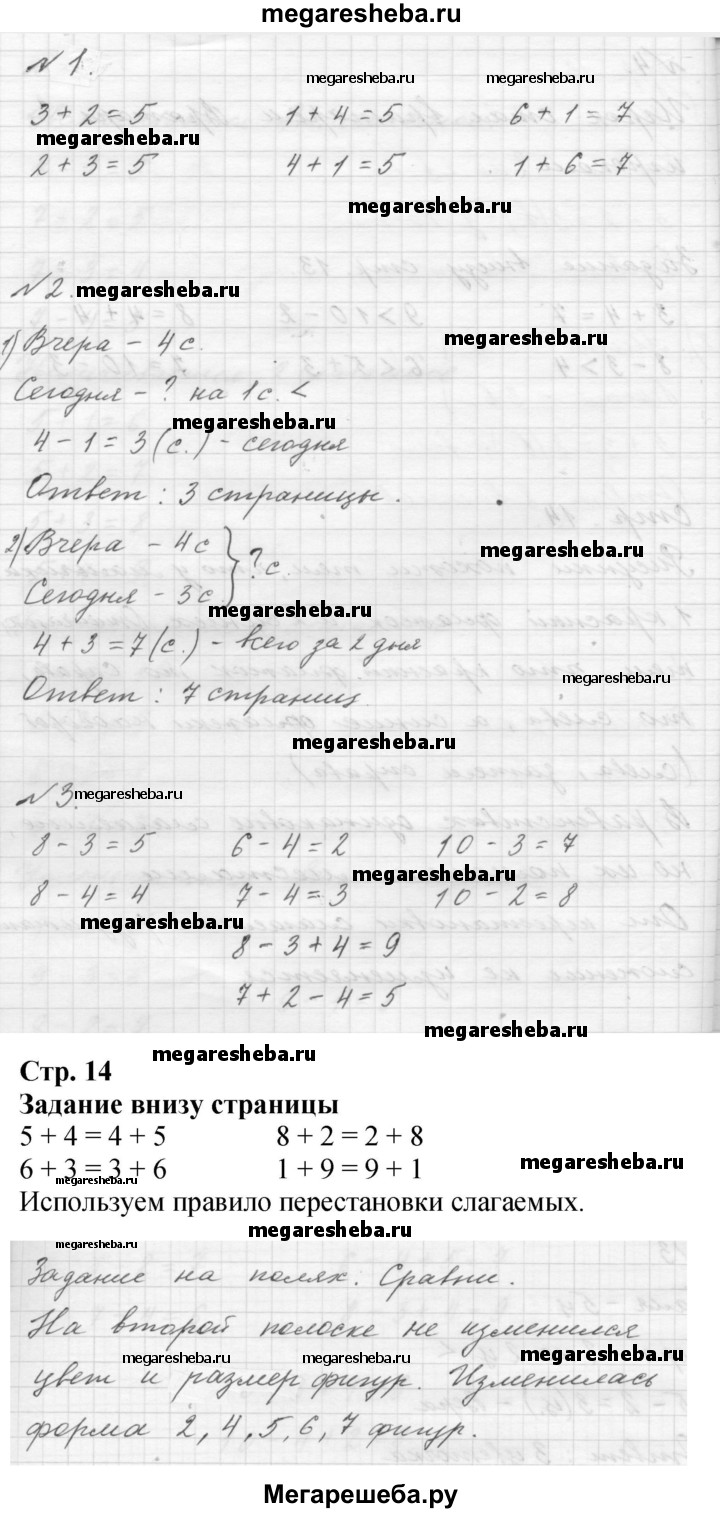 megaresheba.ru
№ 1.
megaresheba.ru megaresheba.ru
3 + 2 = 5 1 + 4 = 5 6 + 1 = 7
megaresheba.ru
2 + 3 = 5 4 + 1 = 5 1 + 6 = 7
megaresheba.ru
№ 2. megaresheba.ru
1) Вчера - 4 с.
Сегодня - ? на 1 с. <
megaresheba.ru
4 - 1 = 3 (с.) - сегодня
Ответ : 3 страницы.
2) Вчера - 4 с } ? с.
megaresheba.ru
Сегодня - 3 с.
megaresheba.ru
4 + 3 = 7 (с.) - всего за 2 дня
megaresheba.ru
Ответ : 7 страниц.
megaresheba.ru
№ 3. megaresheba.ru
8 - 3 = 5 6 - 4 = 2 10 - 3 = 7
megaresheba.ru
8 - 4 = 4 7 - 4 = 3 10 - 2 = 8
megaresheba.ru
8 - 3 + 4 = 9
7 + 2 - 4 = 5
megaresheba.ru
megaresheba.ru
Стр. 14
Задание внизу страницы
5 + 4 = 4 + 5 8 + 2 = 2 + 8
6 + 3 = 3 + 6 1 + 9 = 9 + 1
megaresheba.ru
megaresheba.ru
Используем правило перестановки слагаемых.
megaresheba.ru
megaresheba.ru
Задание на полях. Сравни.
На второй полоске не изменился
megaresheba.ru megaresheba.ru megaresheba.ru
цвет и размер фигур. Изменилась
форма 2, 4, 5, 6, 7 фигур.
Мегарешеба.ру